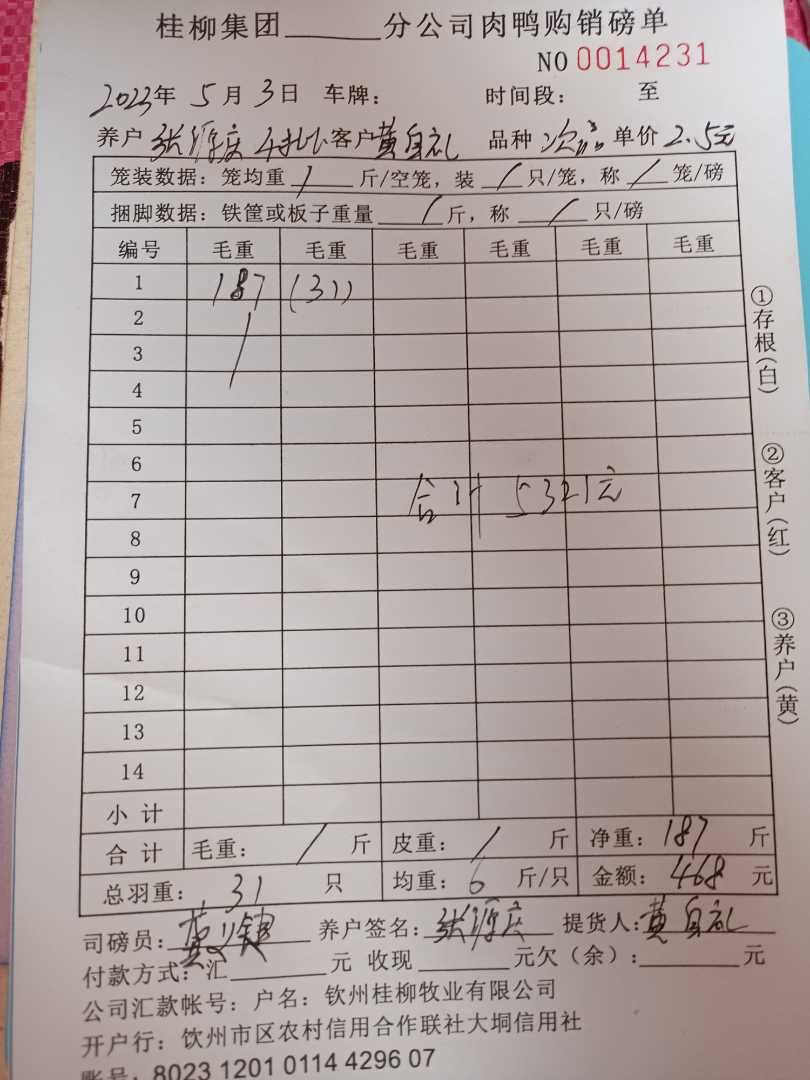 桂柳集团______分公司肉鸭购销磅单
NO 0014231
2023年 5月3日 车牌: 时间段: 至
养户 张源庆 客户黄自礼 品种 次品 单价 2.5元
笼装数据: 笼均重 / 斤/空笼, 装 / 只/笼, 称 / 笼/磅
捆脚数据: 铁筐或板子重量 / 斤, 称 / 只/磅
编号 毛重 毛重 毛重 毛重 毛重 毛重
1 187 (31)
2
3
4
5
6
7 合计 5321元
8
9
10
11
12
13
14
小计
合计 毛重: / 斤 皮重: / 斤 净重: 187 斤
总羽重: 31 只 均重: 6 斤/只 金额: 468 元
司磅员: 黄 养户签名: 张源庆 提货人: 黄自礼
付款方式: 汇______元 收现______元欠(余):______元
公司汇款帐号: 户名: 钦州桂柳牧业有限公司
开户行: 钦州市区农村信用合作联社大垌信用社
账号: 8023 1201 0114 4296 07
①存根(白)
②客户(红)
③养户(黄)